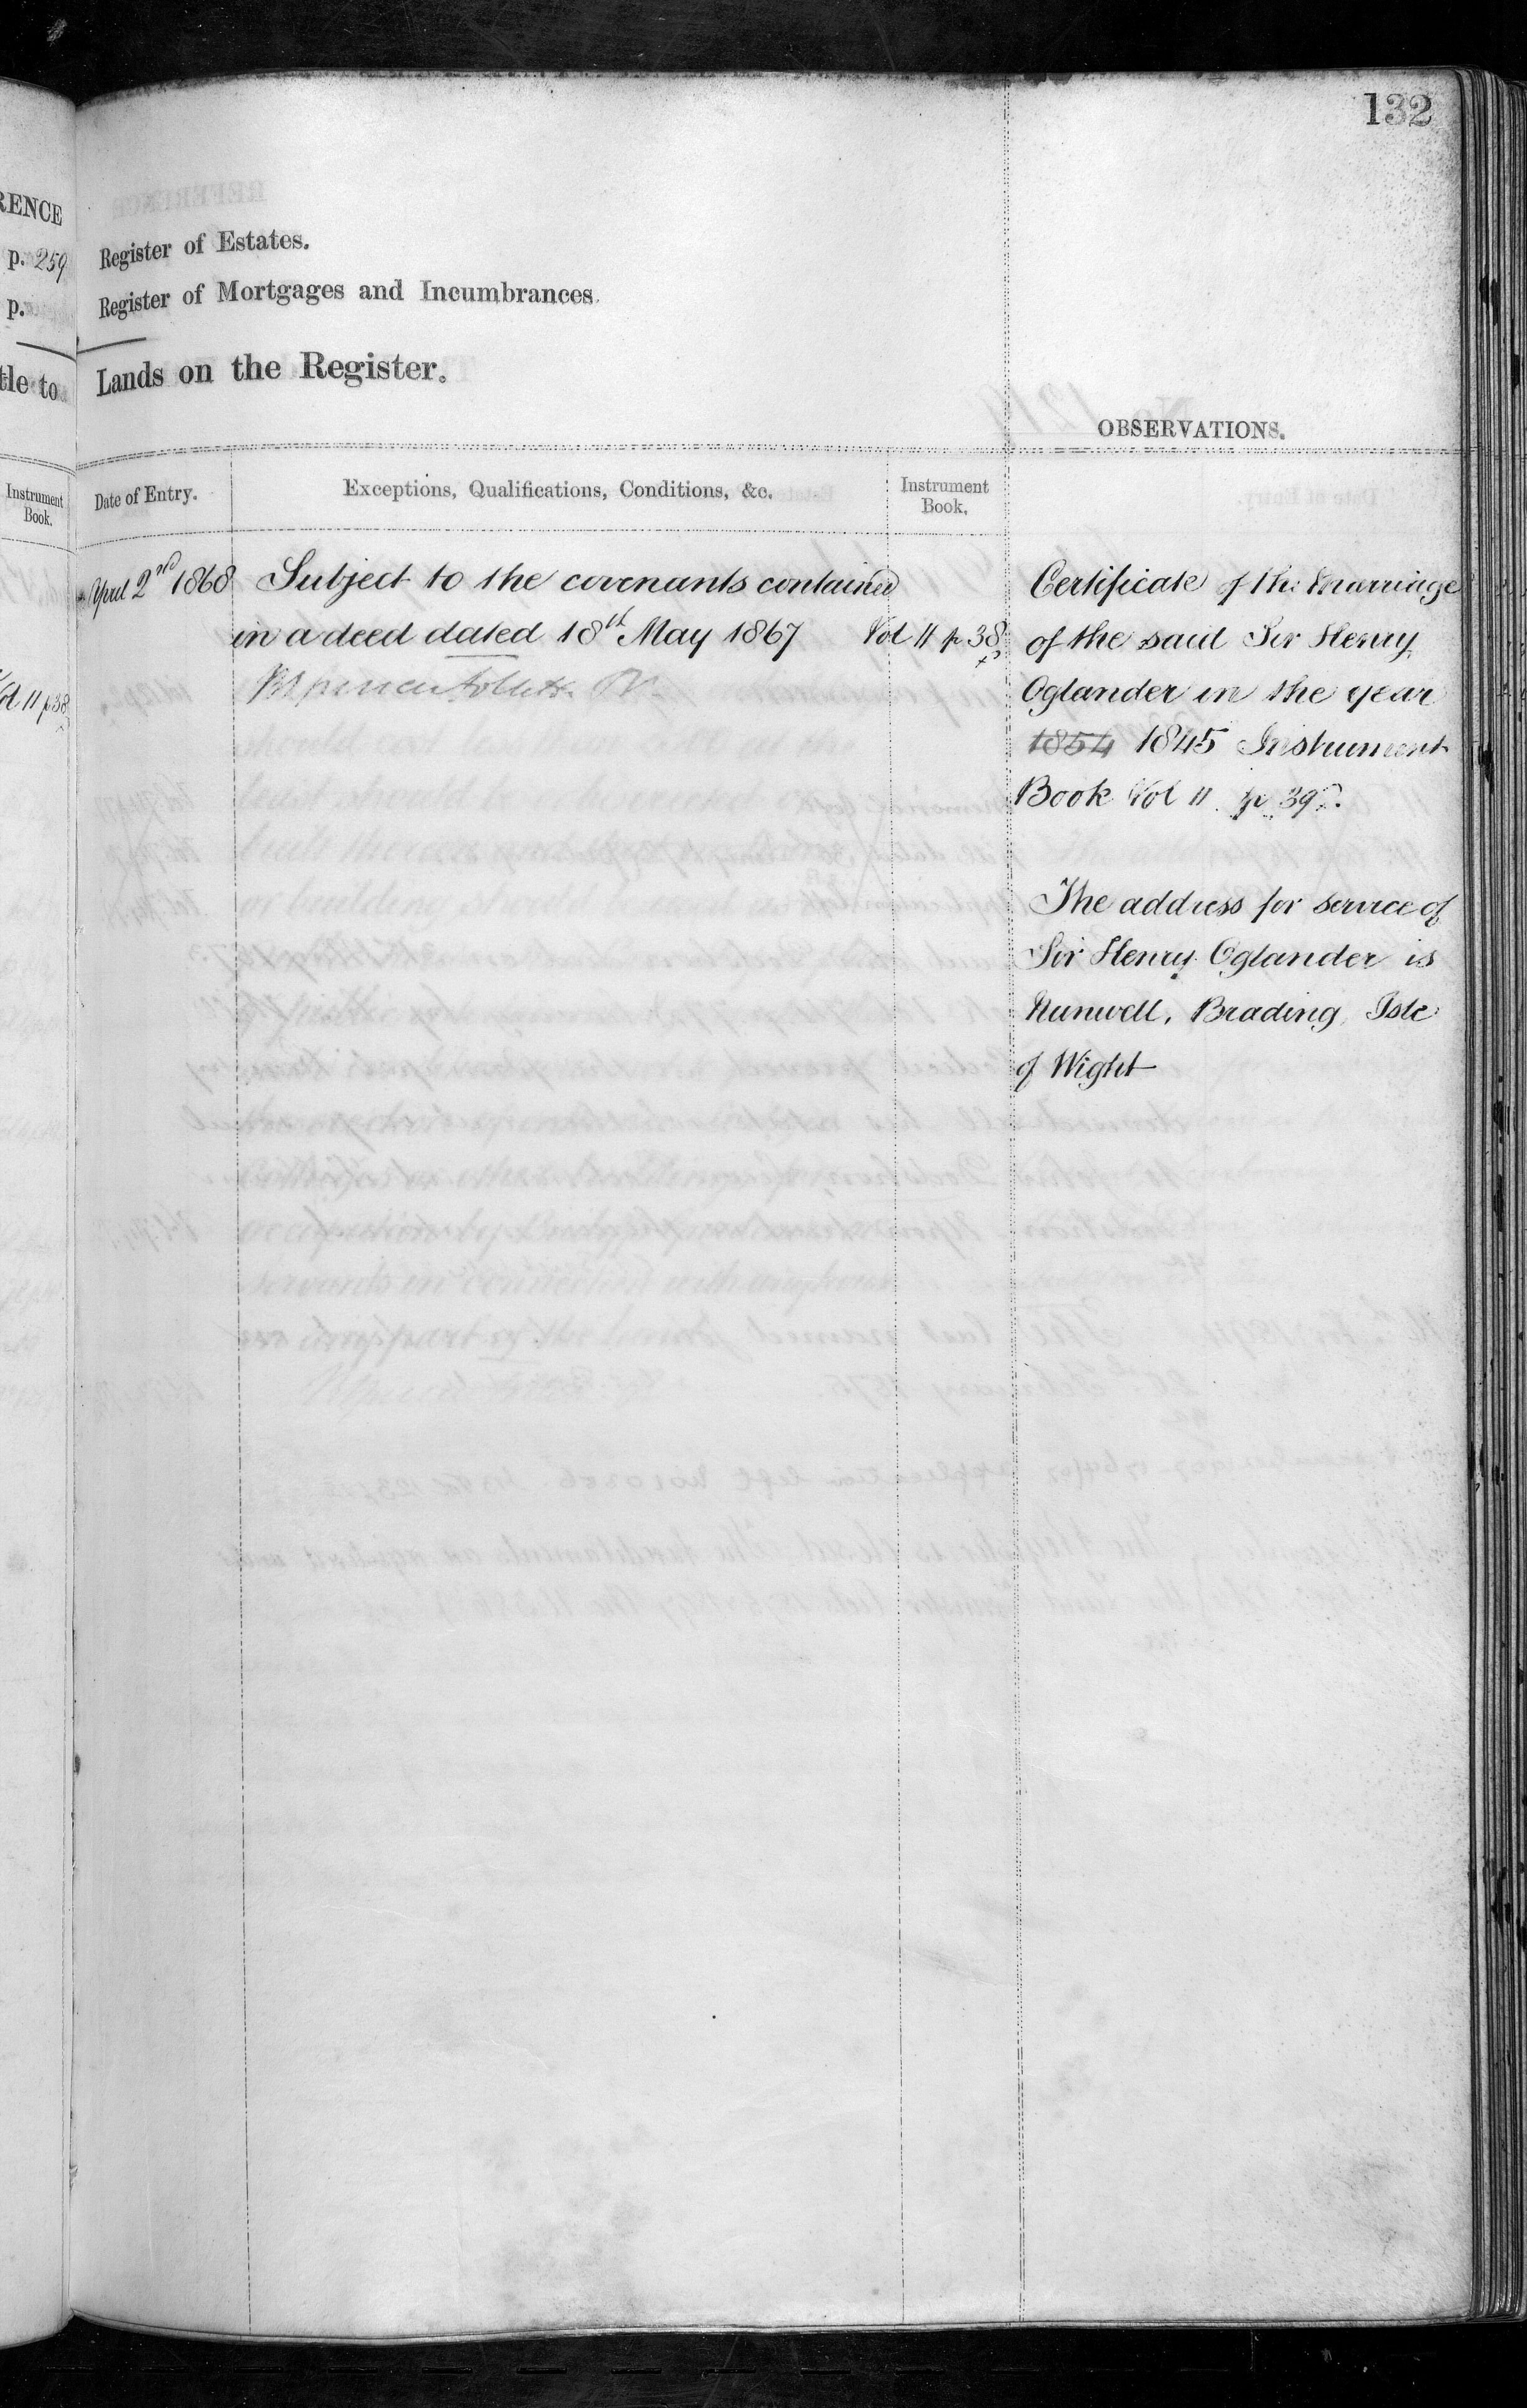 132
RENCE
p. 259
p.
tle to
Instrument
Book.
Vol 11 p 38
Register of Estates.
Register of Mortgages and Incumbrances.
Lands on the Register.
OBSERVATIONS.
Date of Entry.
Exceptions, Qualifications, Conditions, &c.
Instrument
Book.
April 2nd 1868
Subject to the covenants contained
in a deed dated 18th May 1867
Vol 11 p 38
Certificate of the Marriage
of the said Sir Henry
Oglander in the year
1854 1845 Instrument
Book Vol 11 p 39
The address for service of
Sir Henry Oglander is
Nunwell, Brading, Isle
of Wight